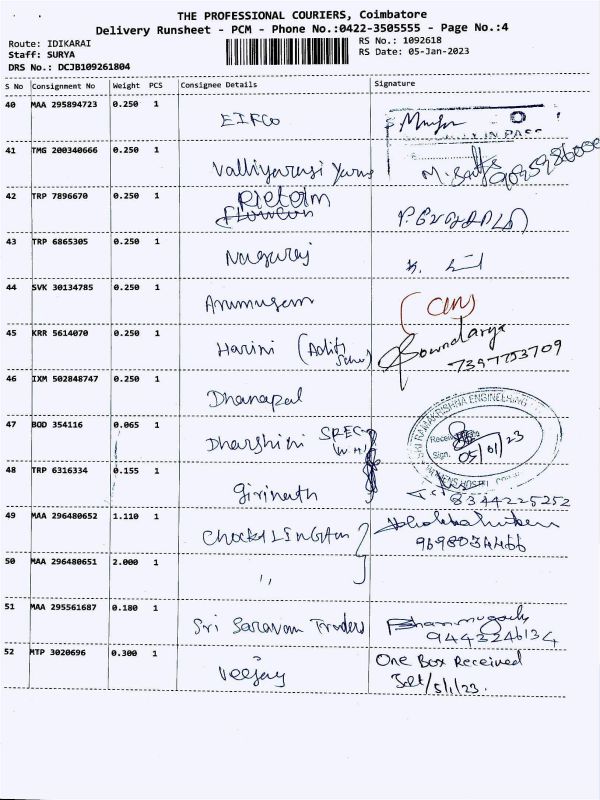 THE PROFESSIONAL COURIERS, Coimbatore
Delivery Runsheet - PCM - Phone No.:0422-3505555 - Page No.:4
Route: IDIKARAI
Staff: SURYA
DRS No.: DCJB109261804
RS No.: 1092618
RS Date: 05-Jan-2023
S No Consignment No Weight PCS Consignee Details Signature
40 MAA 295894723 0.250 1 EIFCO
IN PASS
41 TMG 200340666 0.250 1 Valliyarasi Yarns
42 TRP 7896670 0.250 1
43 TRP 6865305 0.250 1 Nagaraj
44 SVK 30134785 0.250 1 Arumugam
45 KRR 5614070 0.250 1 Harini Sowndarya
7397753709
46 IXM 502848747 0.250 1 Dhanapal
SRI RAMAKRISHNA ENGINEERING
47 BOD 354116 0.065 1 Dharshini SREC
Sign. 05/01/23
48 TRP 6316334 0.155 1 Girinath
8344225252
49 MAA 296480652 1.110 1 CHOCKALINGAM
9698034466
50 MAA 296480651 2.000 1 ,,
51 MAA 295561687 0.180 1 Sri Saravan Traders
9443246134
52 MTP 3020696 0.300 1 Veejay One Box Received
5/1/23.